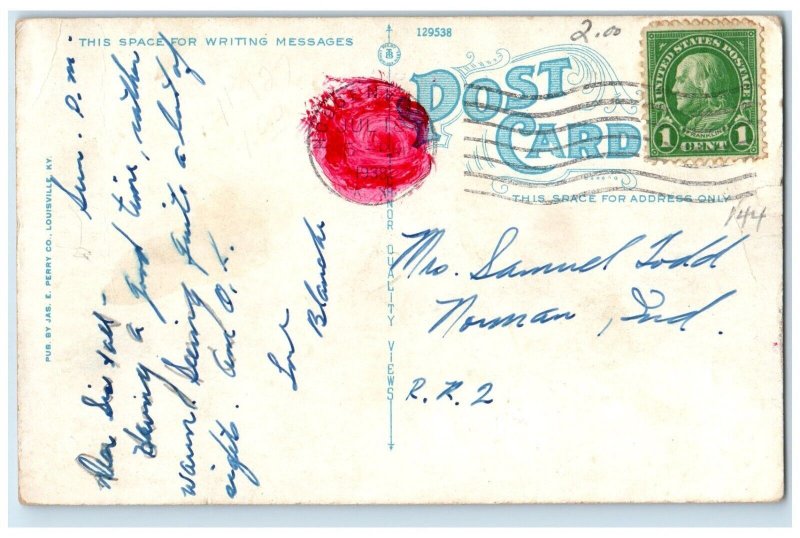 THIS SPACE FOR WRITING MESSAGES
129538
2.00
POST
CARD
UNITED STATES POSTAGE
FRANKLIN
1 CENT 1
THIS SPACE FOR ADDRESS ONLY
144
PUB. BY JAS. E. PERRY CO., LOUISVILLE, KY.
Sun. P.M.
Dear Sis & all-
Having a good time, rather
warm. Seeing quite a lot of
sights. Am O.K.
Love
Blanche
QUALITY VIEWS
Mrs. Samuel Todd
Norman, Ind.
R.R.2